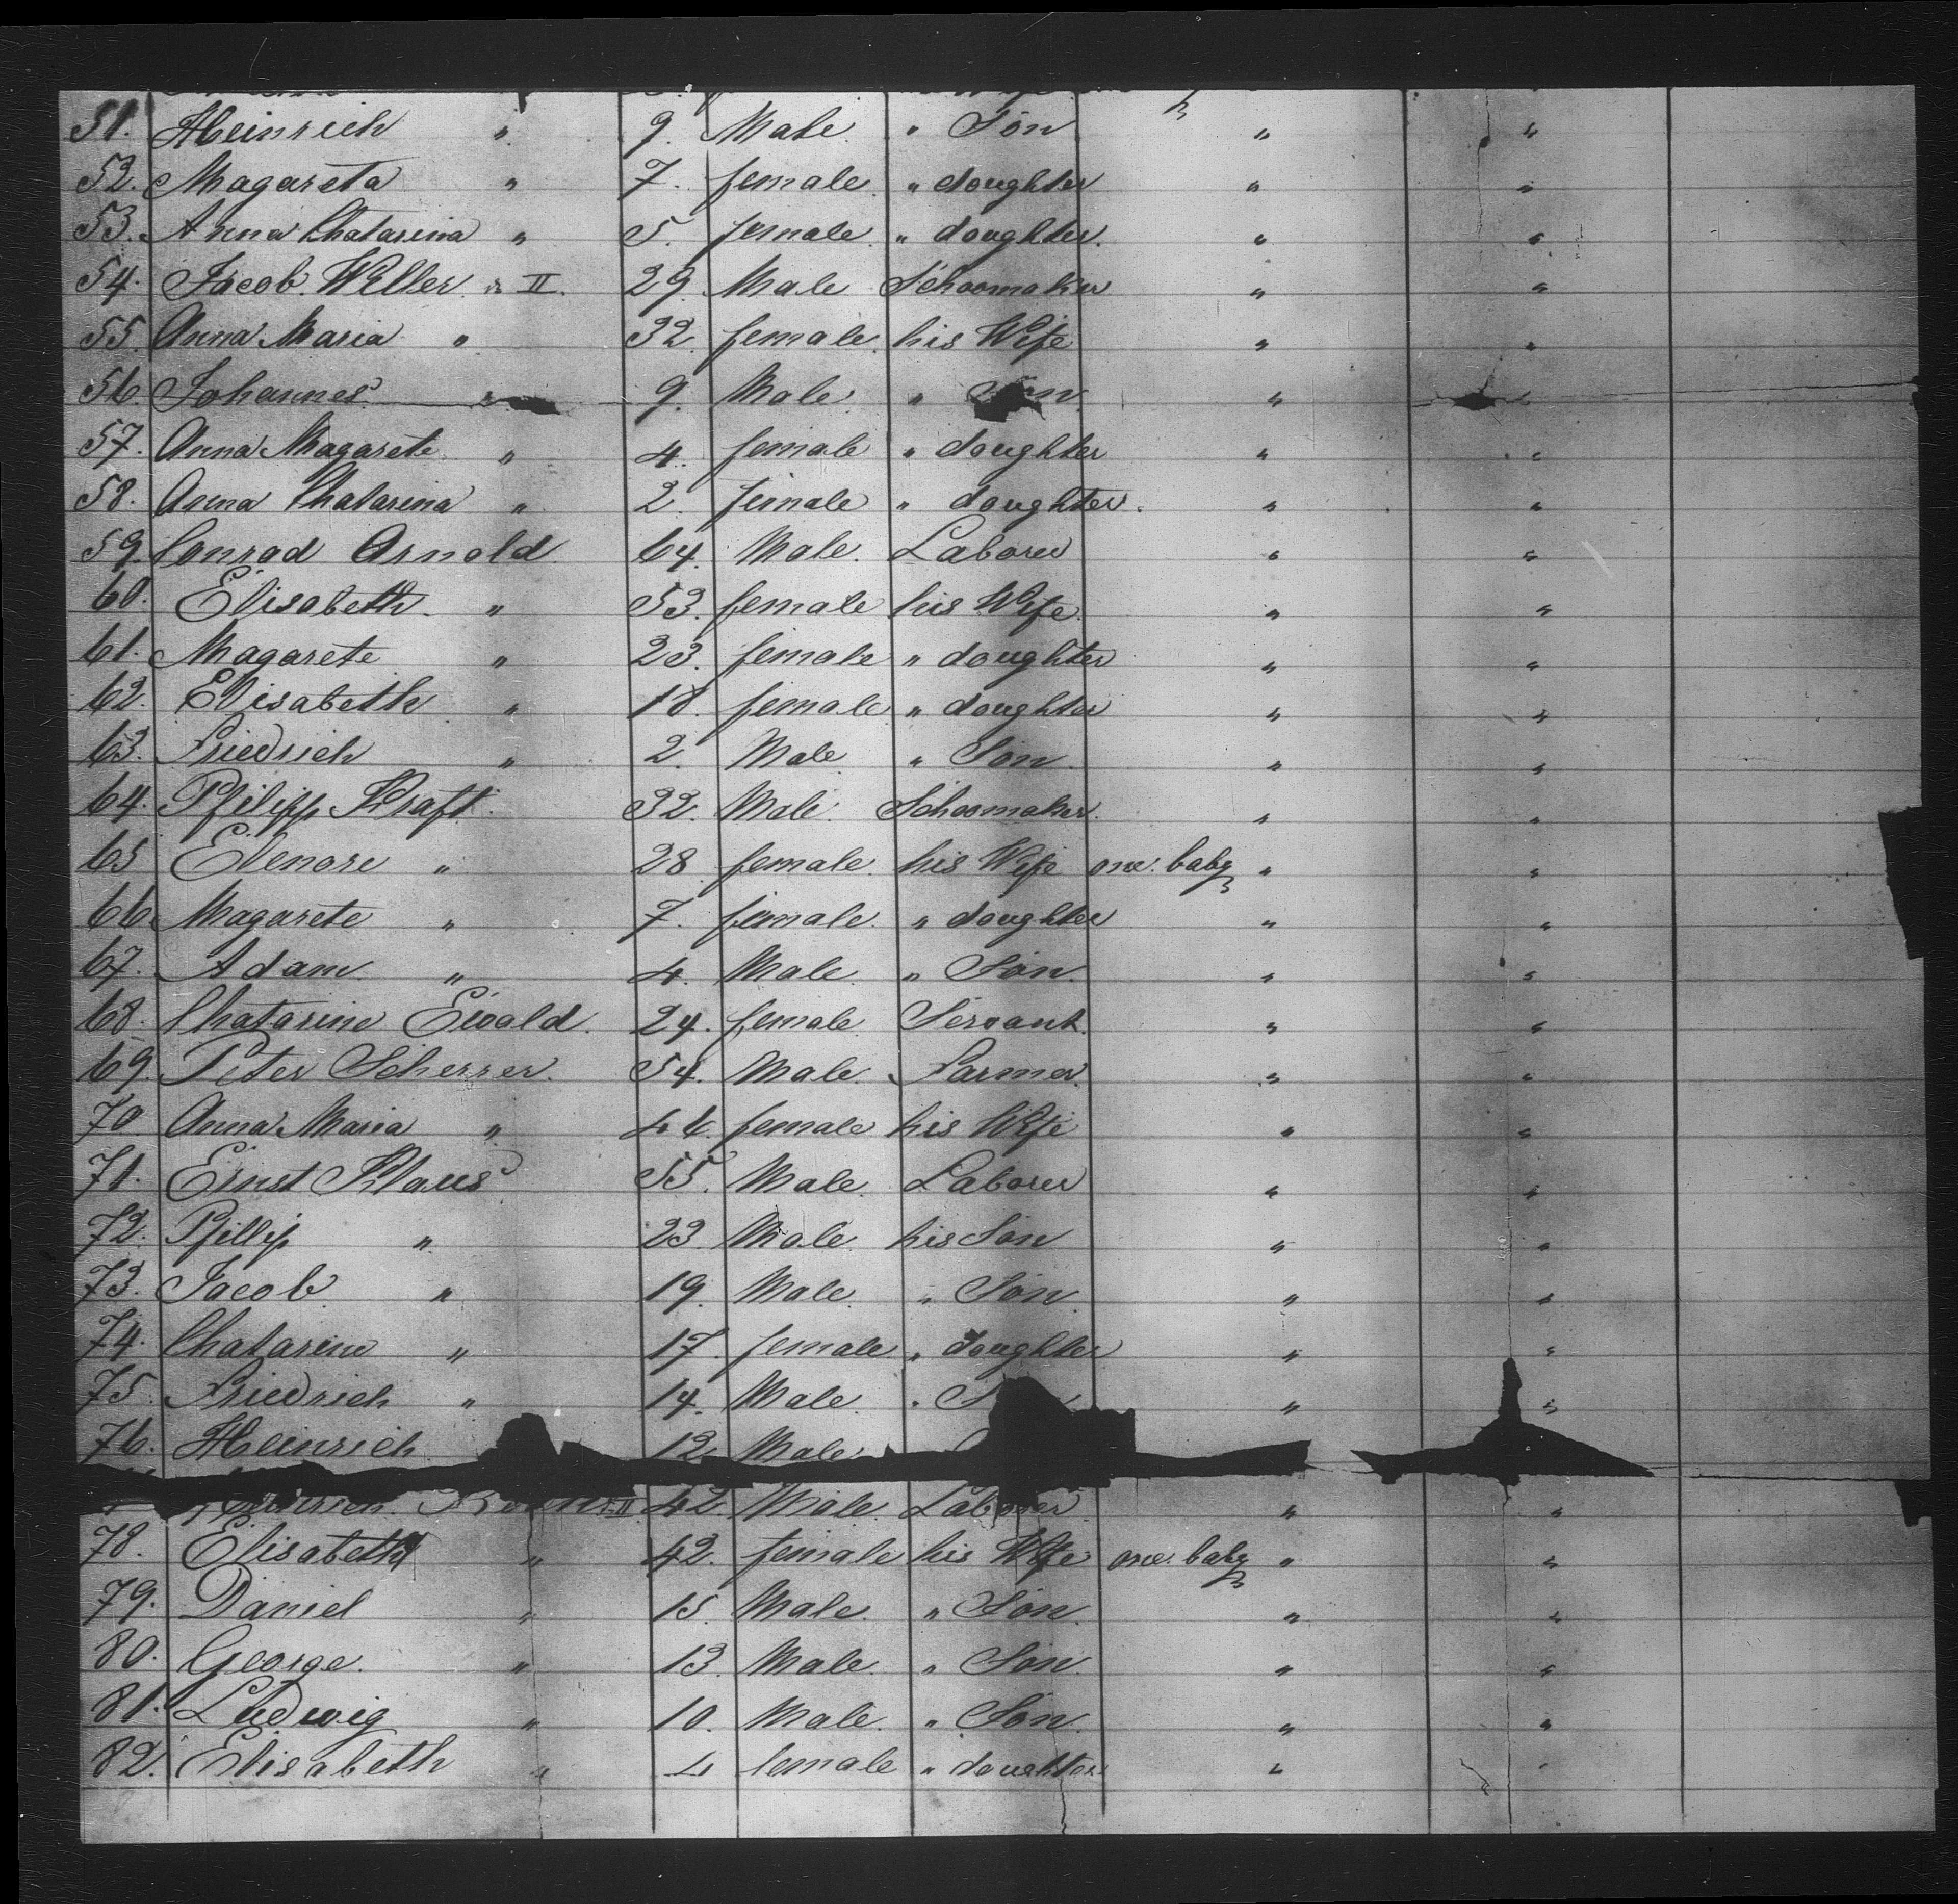 51. Heinrich " 9. Male. " Son " "
52. Magareta " 7. female. " doughter " "
53. Anna Chatarina " 5. female. " doughter. " "
54. Jacob Weller II. 29. Male Schoomaker " "
55. Anna Maria " 32. female. his Wife " "
56. Johannes " 9. Male. " Son. " "
57. Anna Magarete " 4. female " doughter " "
58. Anna Chatarina " 2. female " doughter. " "
59. Conrad Arnold 64. Male. Laborer " "
60. Elisabeth. " 53. female his Wife. " "
61. Magarete " 23. female " doughter " "
62. Elisabeth " 18. female " doughter " "
63. Friedrich " 2. Male " Son. " "
64. Pfilipp Kraft. 32. Male. Schoomaker. " "
65 Elenore " 28 female. his Wife one. baby " "
66. Magarete " 7. female. " doughter " "
67. Adam " 4. Male. " Son. " "
68. Chatarine Ewald. 24. female Servant. " "
69. Peter Scherrer. 54. Male. Farmer. " "
70 Anna Maria " 46. female his Wife " "
71. Ernst Klaus 55. Male. Laborer " "
72. Pfillip " 23. Male. his Son " "
73. Jacob " 19. Male. " Son. " "
74. Chatarine " 17. female. " doughter " "
75. Friedrich " 14. Male. " " "
76. Heinrich 12. Male
Heinrich II 42. Male. Laborer " "
78. Elisabeth " 42. female his Wife one. baby " "
79. Daniel " 15. Male. " Son. " "
80. George. " 13. Male. " Son. " "
81. Ludwig " 10. Male. " Son. " "
82. Elisabeth " 4 female " doughter " "